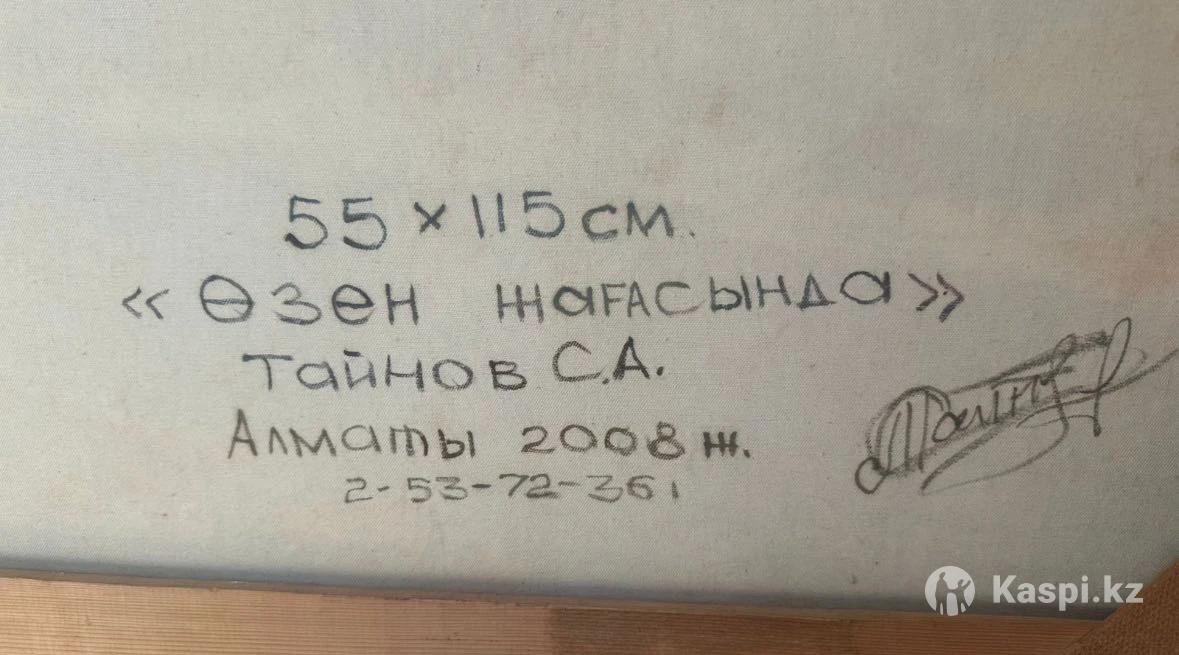 55 × 115 см.
« Өзен жағасында »
Тайнов С.А.
Алматы 2008 ж.
2-53-72-361
Kaspi.kz